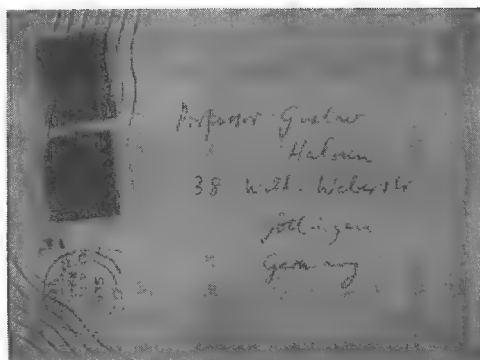 Professor Gustav
38 Wilh. Weberstr
Göttingen
Germany